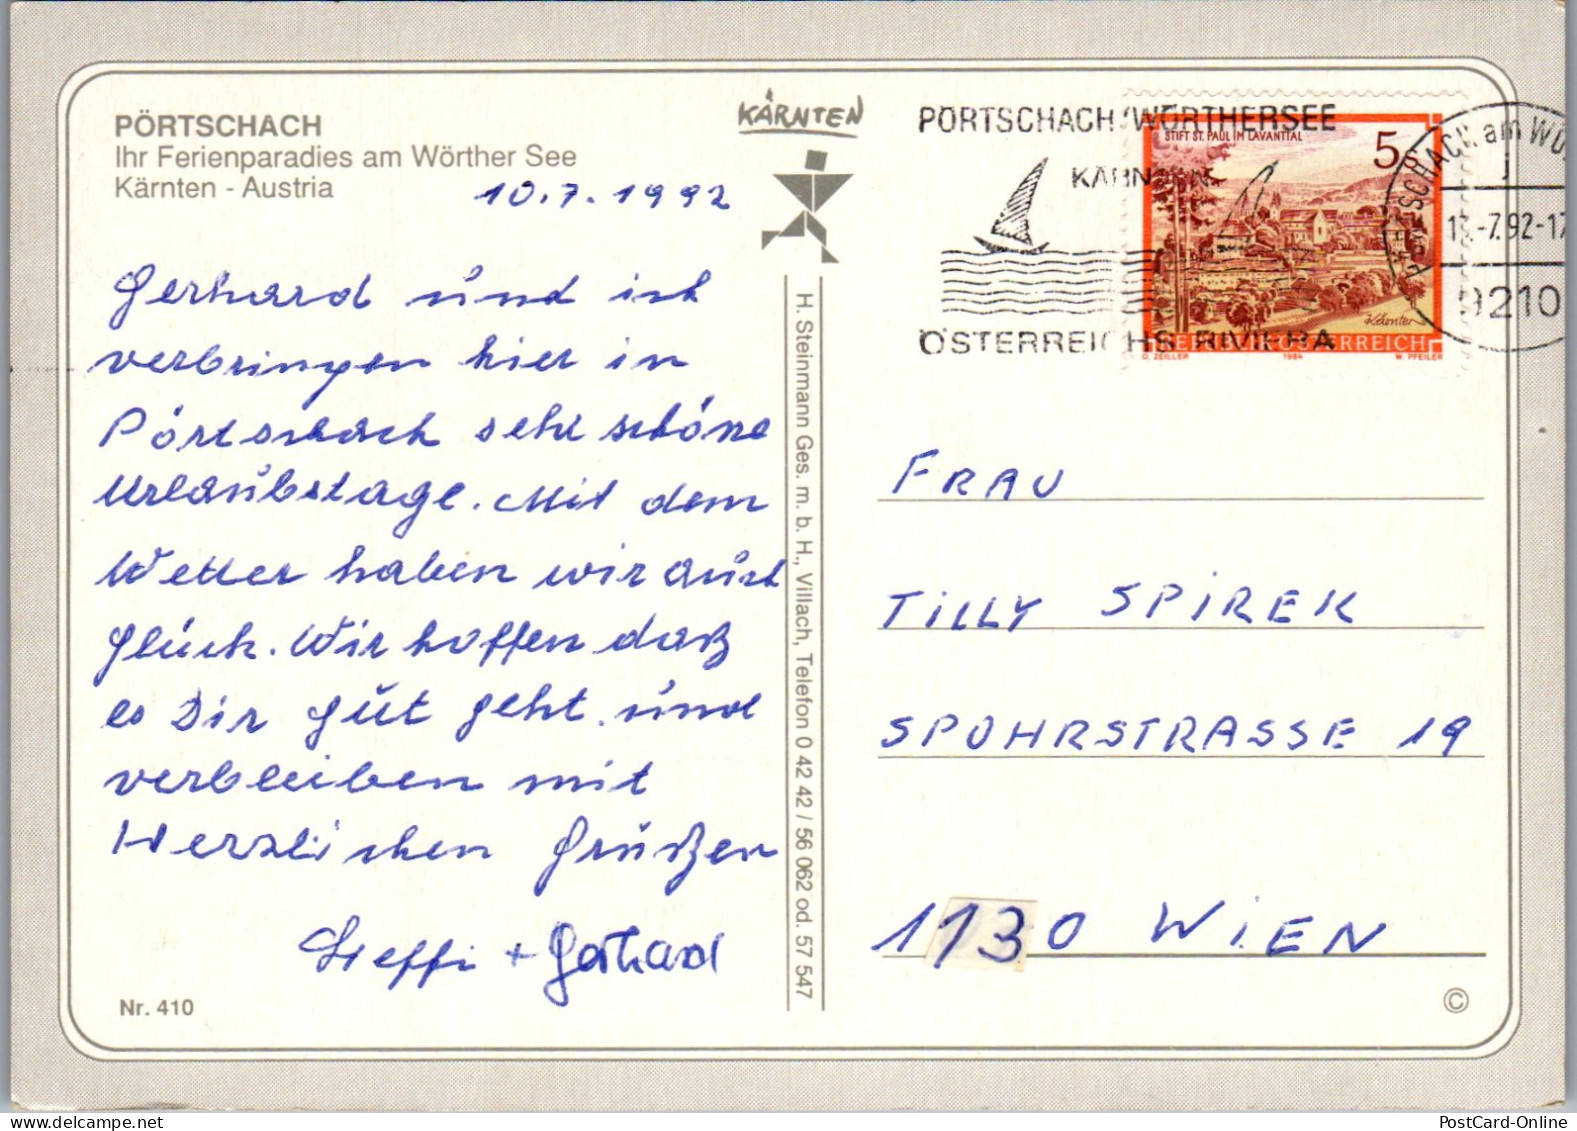 PÖRTSCHACH
Ihr Ferienparadies am Wörther See
Kärnten - Austria
10.7.1992
Gerhard und ich
verbringen hier in
Pörtschach sehr schöne
Urlaubstage. Mit dem
Wetter haben wir auch
Glück. Wir hoffen daß
es Dir gut geht und
verbleiben mit
Herzlichen Grüßen
Steffi + Gerhard
Nr. 410
KÄRNTEN
H. Steinmann Ges. m. b. H., Villach, Telefon 0 42 42 / 56 062 od. 57 547
PÖRTSCHACH/WÖRTHERSEE
KÄRNTEN
ÖSTERREICHS RIVIERA
STIFT ST. PAUL IM LAVANTTAL
5
Kärnten
REPUBLIK ÖSTERREICH
O. ZEILLER 1984 W. PFEILER
PÖRTSCHACH am WÖ
j
-7.92-17
9210
FRAU
TILLY SPIREK
SPOHRSTRASSE 19
1130 WIEN
©
PostCard-Online